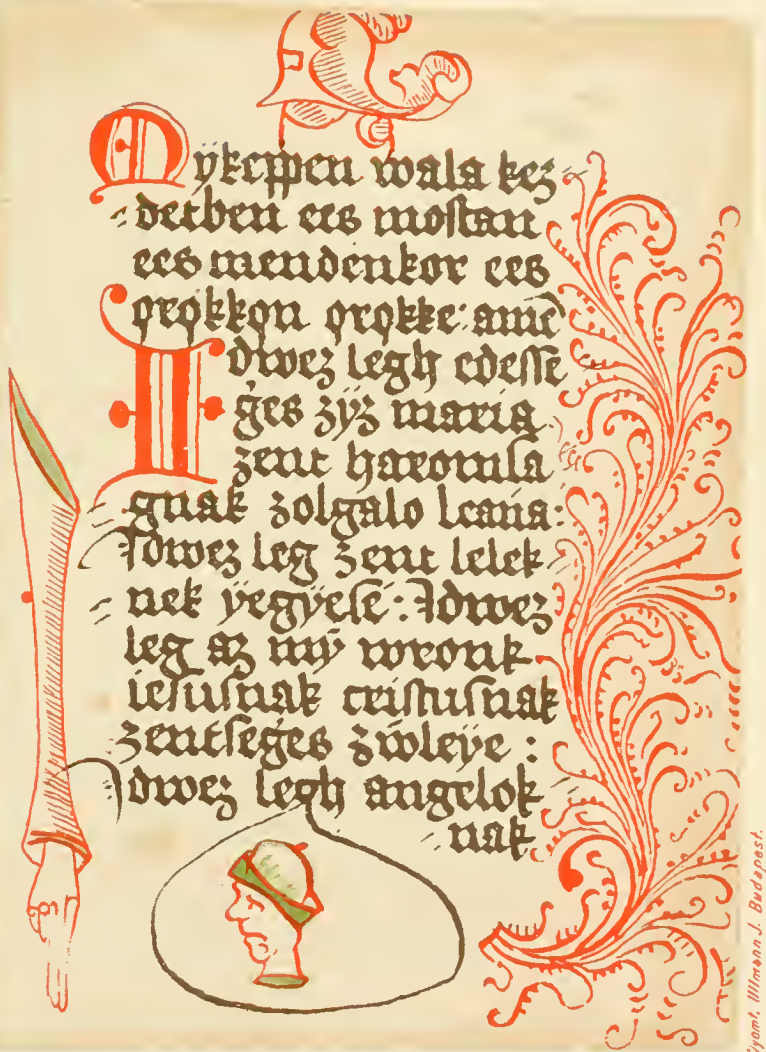 Mÿkeppen wala kez⸗
⸗detben ees moſtan
ees mendenkor ees
ꝍrꝍkkꝍn ꝍrꝍkke: amē
Idwez legh edeſſe⸗
ges zÿz maria
zent haromſa⸗
gnak zolgalo leania:
Idwez leg zent lelek⸗
⸗nek ÿegÿeſe: Idwez
leg az mÿ wronk⸗
ieſuſnak criſtuſnak
zentſeges zwleÿe:
Idwez legh angelok⸗
⸗nak
Nyomt. Ullmann J. Budapest.